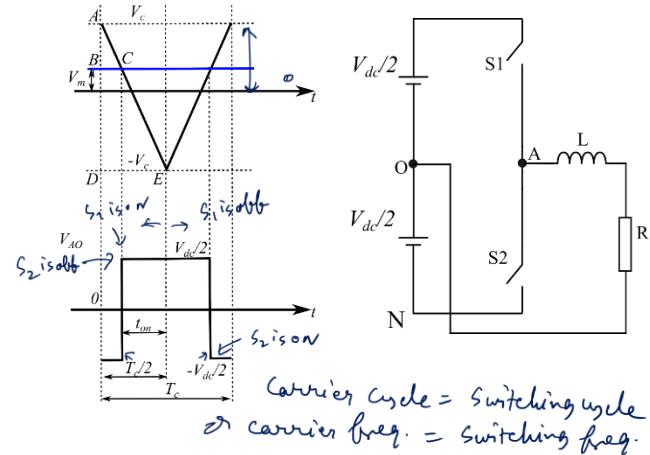 A V_c
B C
V_m
t
-V_c
D E
S_1 is ON S_1 is off
V_AO V_dc/2
S_2 is off
0
t
t_on
S_2 is ON
T_c/2 -V_dc/2
T_c
V_dc/2 S1
L
O A
R
V_dc/2
S2
N
Carrier cycle = Switching cycle
or carrier freq. = switching freq.